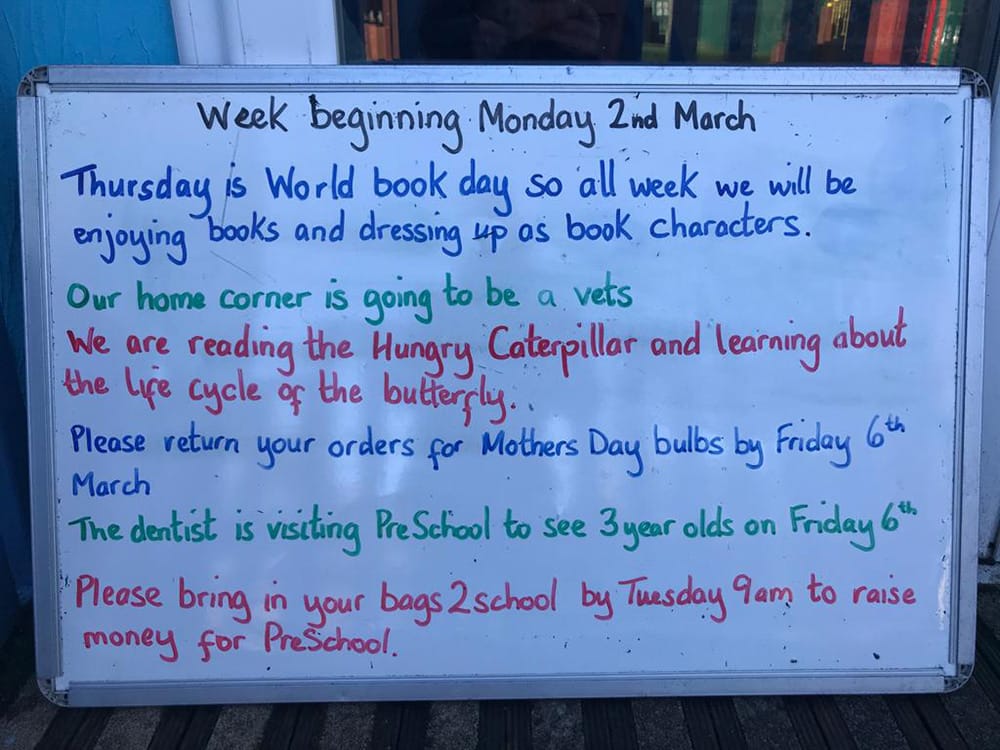 Week beginning Monday 2nd March
Thursday is World book day so all week we will be
enjoying books and dressing up as book characters.
Our home corner is going to be a vets
We are reading the Hungry Caterpillar and learning about
the life cycle of the butterfly.
Please return your orders for Mothers Day bulbs by Friday 6th
March
The dentist is visiting PreSchool to see 3 year olds on Friday 6th
Please bring in your bags2school by Tuesday 9am to raise
money for PreSchool.